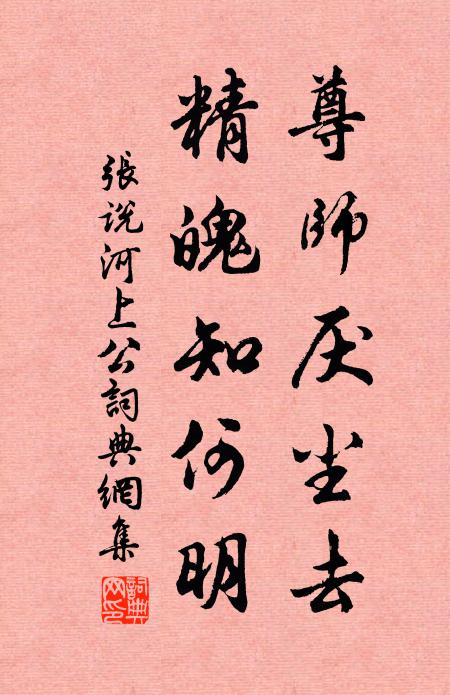 尊師厌尘去
精魄知何明
張说河上公詞典網集
詞典网印